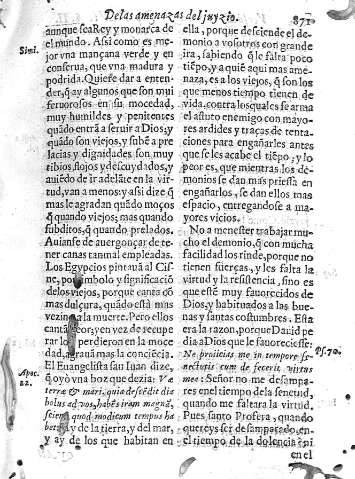 De las amenazas del juyzio.
871
aunque sea Rey y monarca de
el mundo. Assi como es me-
jor vna mançana verde y en
conserua, que vna madura y
podrida. Quiere dar a enten-
der, q̃ ay algunos que son mui
feruorosos en su mocedad,
muy humildes y penitentes
quãdo entrã a seruir a Dios; y
quãdo son viejos, y subẽ a pre
lacias y dignidades son muy
tibios, flojos y descuydados, y
auiẽdo de ir adelãte en la vir-
tud, van a menos: y assi dize q̃
mas le agradan quãdo moços
q̃ quando viejos; mas quando
subditos, q̃ quando prelados.
Auianse de auergonçar de te-
ner canas tan mal empleadas.
Los Egypcios pintauã al Cis-
ne, por simbolo y significaciõ
de los viejos, porque canta cõ
mas dulçura, quãdo està mas
vezino a la muerte. Pero ellos
cantã peor; y en vez de recupe
rar lo q̃ perdieron en la moce
dad, atrauã mas la conciẽcia.
El Euangelista san Iuan dize,
q̃ oyò vna boz que dezia: Væ
terræ & mari, quia descẽdit dia
bolus ad vos, habẽs iram magnã,
sciens quod modicum tempus ha
bet: Ay de la tierra, y del mar,
y ay de los que habitan en
Simi.
Apoc.
12.
ella, porque desciende el de-
monio a vosotros con grande
ira, sabiendo q̃ le falta poco
tiẽpo; y a quiẽ aqui mas ame-
naza, es a los viejos, q̃ son los
que menos tiempo tienen de
vida, contra los quales se arma
el astuto enemigo con mayo-
res ardides y traças de tenta-
ciones para engañarles antes
que se les acabe el tiẽpo; y lo
peor es, que mientras los de-
monios se dan mas priessa en
engañarlos, se dan ellos mas
espacio, entregandose a ma-
yores vicios.
No a menester trabajar mu-
cho el demonio, q̃ con mucha
facilidad los rinde, porque no
tienen fuerças, y les falta la
virtud y la resistencia, sino es
que estè muy fauorecidos de
Dios, y habituados a las bue-
nas y santas costumbres. Esta
era la razon, porque Dauid pe
dia a Dios que le fauoreciesse:
Ne proijcias me in tempore se-
nectutis cum defecerit virtus
mea: Señor no me desampa-
res en el tiempo de la senetud,
quando me faltarà la virtud.
Pues santo Profeta, quando
quereys ser desamparado, en
el tiempo de la dolencia, ni
en el
Ps. 70.